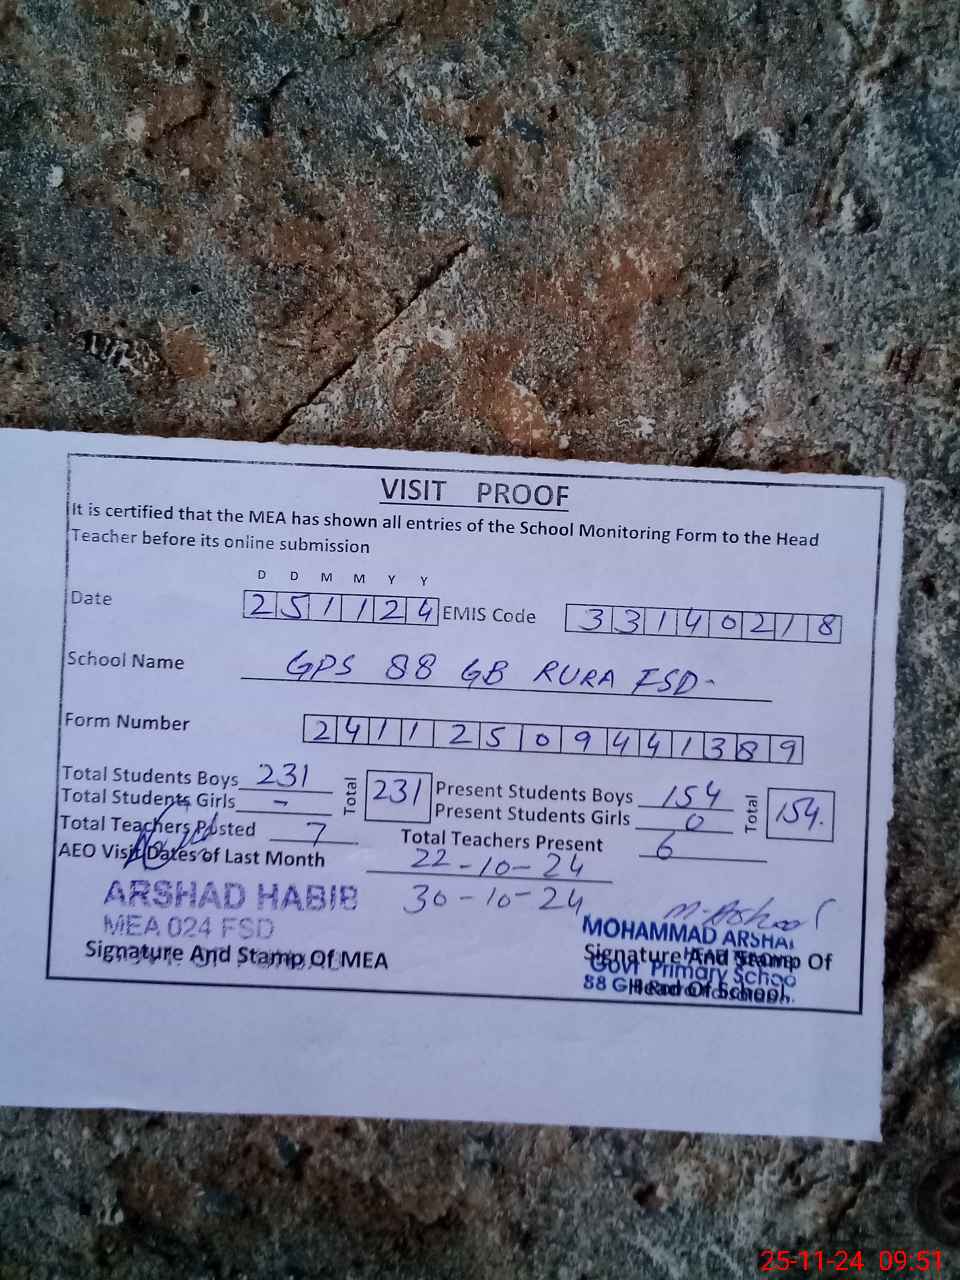 VISIT PROOF
It is certified that the MEA has shown all entries of the School Monitoring Form to the Head
Teacher before its online submission
D D M M Y Y
Date 251124 EMIS Code 33140218
School Name GPS 88 GB RURA FSD-
Form Number 24112509441389
Total Students Boys 231 Total 231 Present Students Boys 154 Total 154.
Total Students Girls - Present Students Girls 0
Total Teachers Posted 7 Total Teachers Present 6
AEO Visit Dates of Last Month 22-10-24
30-10-24
ARSHAD HABIB
MEA 024 FSD
Signature And Stamp Of MEA
MOHAMMAD ARSHA
Signature And Stamp Of
Govt Primary Schoo
88 G
Head Of School
25-11-24 09:51